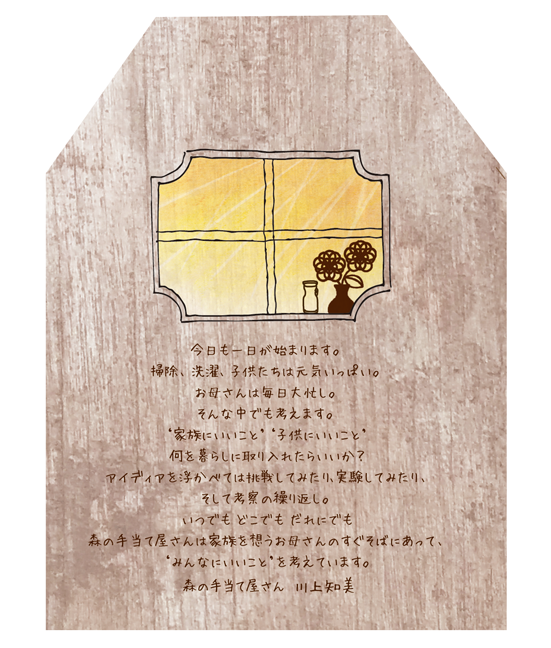 今日も一日が始まります。
掃除、洗濯、子供たちは元気いっぱい。
お母さんは毎日大忙し。
そんな中でも考えます。
“家族にいいこと” “子供にいいこと”
何を暮らしに取り入れたらいいか？
アイディアを浮かべては挑戦してみたり、実験してみたり、
そして考察の繰り返し。
いつでも どこでも だれにでも
森の手当て屋さんは家族を想うお母さんのすぐそばにあって、
“みんなにいいこと”を考えています。
森の手当て屋さん 川上知美